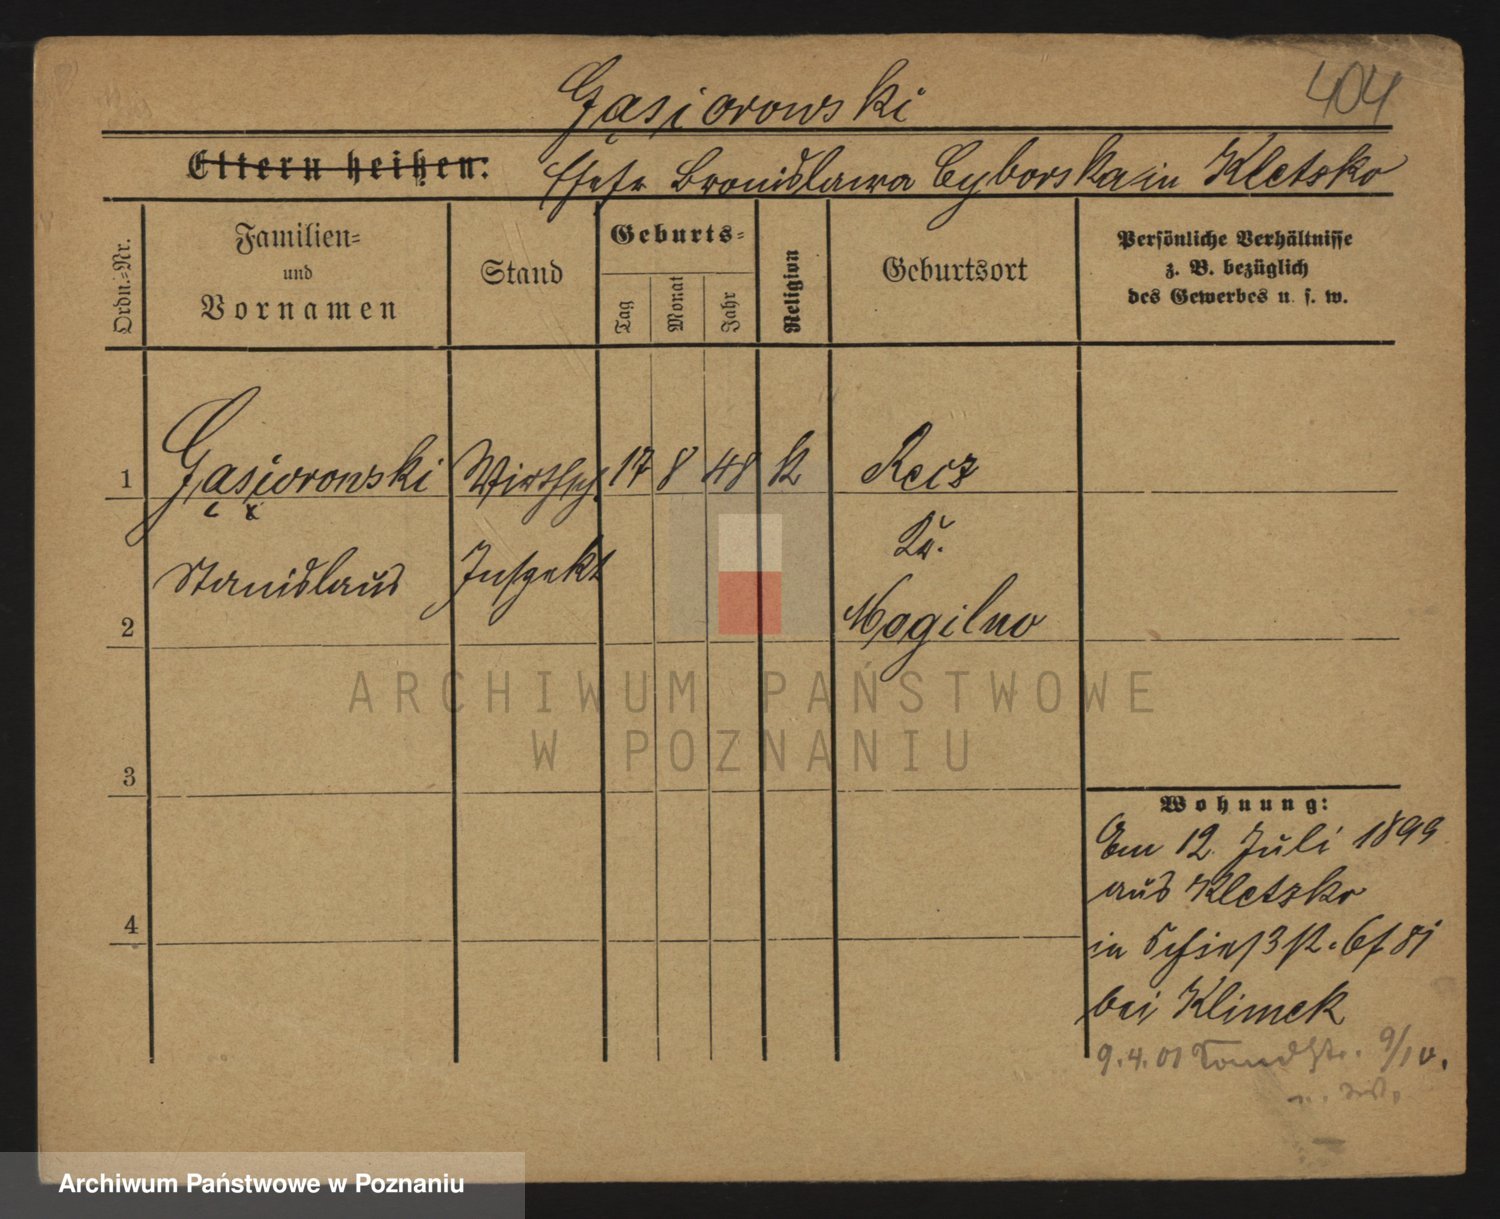 404
Gąsiorowski
Eltern heißen:
Ehefr Bronislawa Cyborska in Kletzko
Ordn.-Nr.
Familien-
und
Vornamen
Stand
Geburts-
Tag
Monat
Jahr
Religion
Geburtsort
Persönliche Verhältnisse
z. B. bezüglich
des Gewerbes u. s. w.
1 Gąsiorowski Wirthsch. 17 8 48 k Recz
Kr.
Stanislaus Inspekt
2 Mogilno
ARCHIWUM PAŃSTWOWE
W POZNANIU
3
Wohnung:
Am 12. Juli 1899
aus Kletzko
4
in
bei Klimek
9.4.01 9/10.
Archiwum Państwowe w Poznaniu